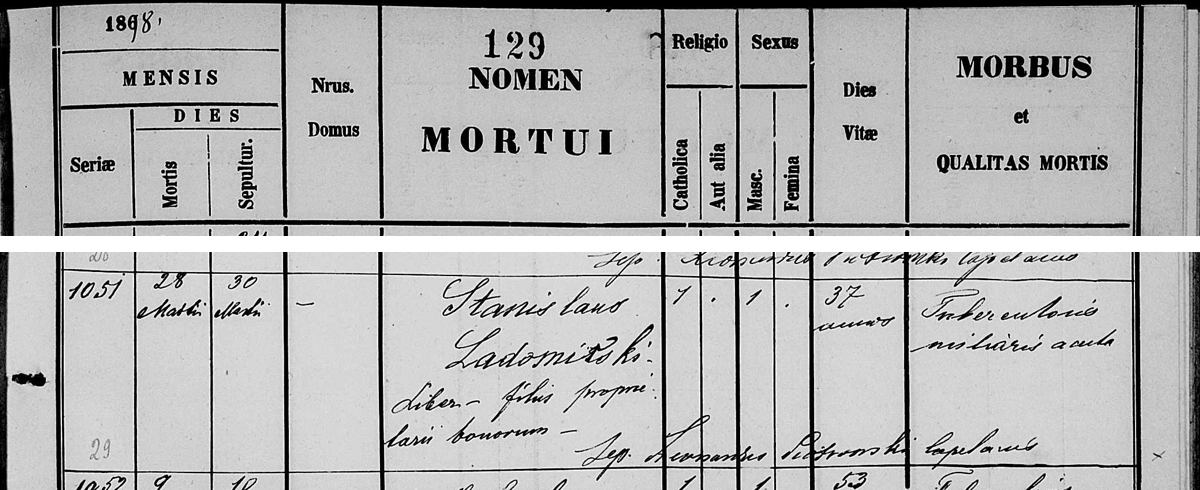 1898.
129
MENSIS
DIES
Seriæ
Mortis
Sepultur.
Nrus.
Domus
NOMEN
MORTUI
Religio
Catholica
Aut alia
Sexus
Masc.
Femina
Dies
Vitæ
MORBUS
et
QUALITAS MORTIS
Sep. capelanus
1051
28
Martii
30
Martii
–
Stanislaus
Ladomirski.
Liber – filius proprie-
tarii bonorum –
1 . 1 .
37
annos
Tuberculosis
miliaris acuta
29
Sep. Piotrowski capelanus
1052 9 10
1 1 53